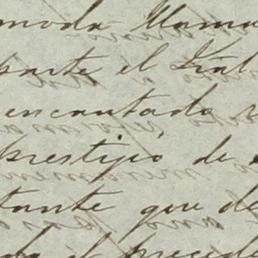 moda llama
parte el
encantado
prestigio de
tante que de
el precede